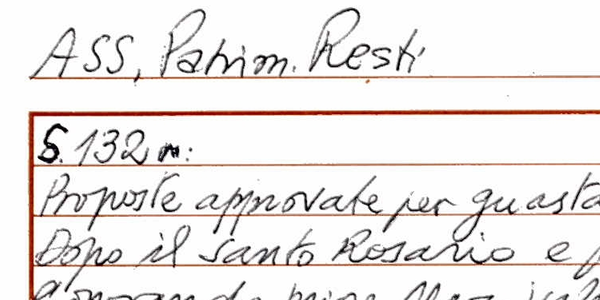 ASS. Patrim. Resti
S. 132 r:
Proposte approvate per guasta
Dopo il santo Rosario e